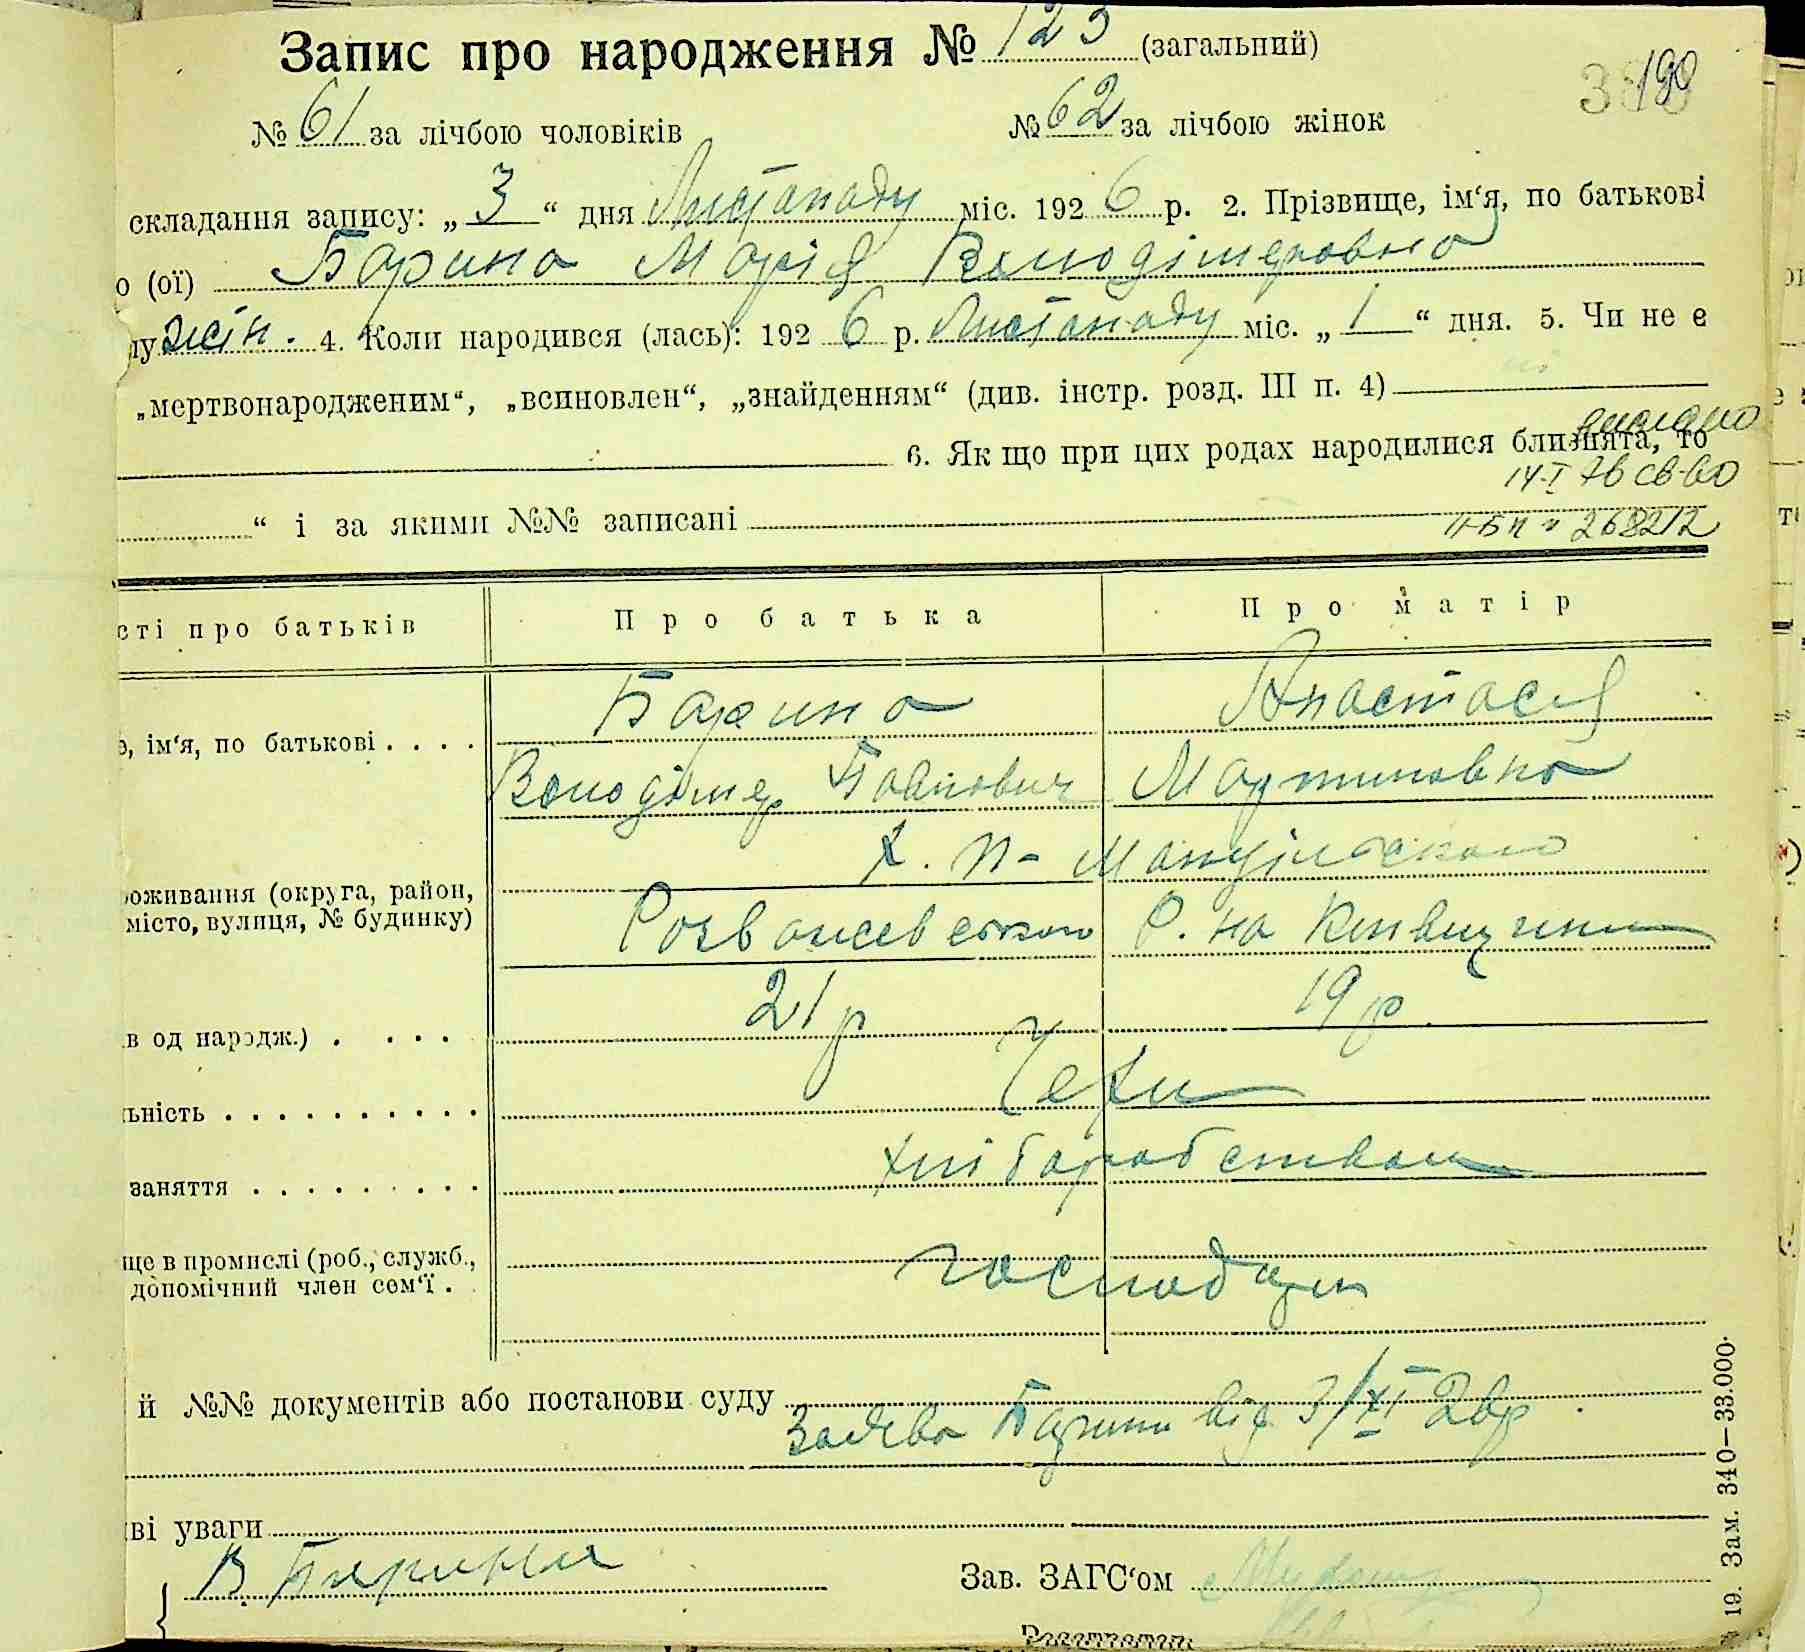 Запис про народження № 123 (загальний)
190
№ 61 за лічбою чоловіків № 62 за лічбою жінок
складання запису: „3“ дня Листопаду міс. 1926 р. 2. Прізвище, ім‘я, по батькові
о (ої) Барина Марія Володімеровна
лу жін. 4. Коли народився (лась): 1926 р. Листопаду міс. „1“ дня. 5. Чи не е
„мертвонародженим“, „всиновлен“, „знайденням“ (див. інстр. розд. III п. 4)
6. Як що при цих родах народилися близнята, то
14-I 76 св-во
“ і за якими №№ записані II-БК № 268212
сті про батьків Про батька Про матір
Барина Анастасія
е, ім‘я, по батькові . . . .
Володімер Павлович Мартиновна
Х. П- Мануільського
роживання (округа, район,
місто, вулиця, № будинку) Розважевського Р. на Київщині
21 р 19 р.
ів од народж.) . . . .
Чехи
льність . . . . . . . . . .
хліборобством
заняття . . . . . . . . .
ще в промислі (роб., служб.,
допомічний член сем‘ї . господар
й №№ документів або постанови суду
Заява Барини від 3/XI 26р.
ві уваги
В Барина Зав. ЗАГС‘ом
Реєстратор
19. Зам. 340—33.000.